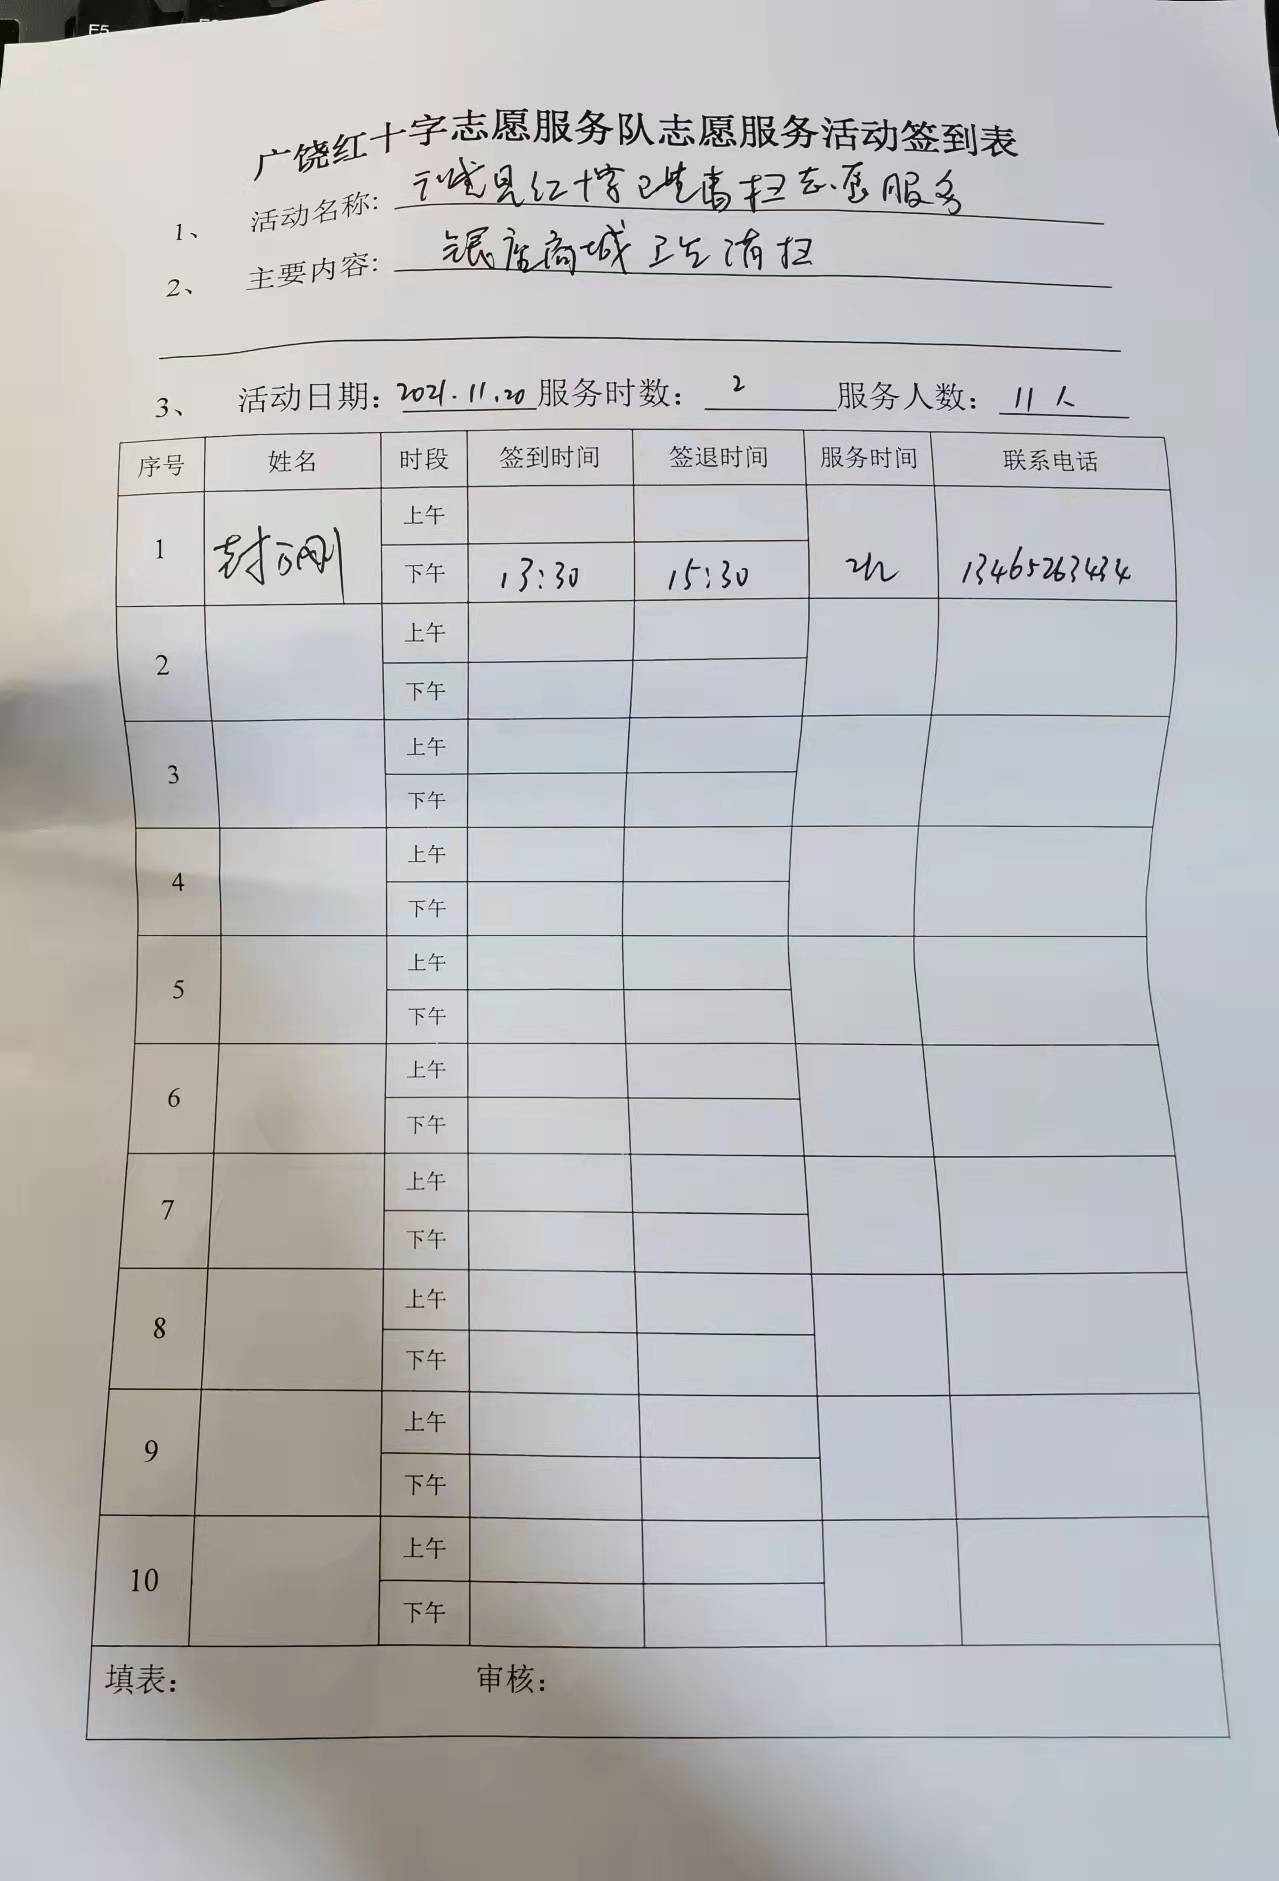 F5
广饶红十字志愿服务队志愿服务活动签到表
1、 活动名称: 红十字卫生清扫志愿服务
2、 主要内容: 商城卫生清扫
3、 活动日期: 2021.11.20 服务时数: 2 服务人数: 11人
序号 姓名 时段 签到时间 签退时间 服务时间 联系电话
1 封 刚 上午
下午 13:30 15:30 2h 13465263434
2 上午
下午
3 上午
下午
4 上午
下午
5 上午
下午
6 上午
下午
7 上午
下午
8 上午
下午
9 上午
下午
10 上午
下午
填表: 审核: